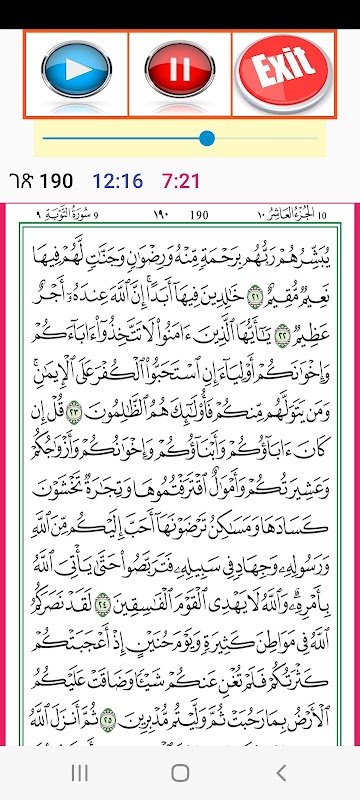 Exit
ገጽ 190 12:16 7:21
٩ سُورَةُ التَّوْبَةِ 9 ١٩٠ 190 الجُزْءُ العَاشِرُ ١٠ 10
يُبَشِّرُهُمْ رَبُّهُم بِرَحْمَةٍ مِّنْهُ وَرِضْوَٰنٍ وَجَنَّٰتٍ لَّهُمْ فِيهَا
نَعِيمٌ مُّقِيمٌ ٢١ خَٰلِدِينَ فِيهَآ أَبَدًا ۚ إِنَّ ٱللَّهَ عِندَهُۥٓ أَجْرٌ
عَظِيمٌ ٢٢ يَٰٓأَيُّهَا ٱلَّذِينَ ءَامَنُوا۟ لَا تَتَّخِذُوٓا۟ ءَابَآءَكُمْ
وَإِخْوَٰنَكُمْ أَوْلِيَآءَ إِنِ ٱسْتَحَبُّوا۟ ٱلْكُفْرَ عَلَى ٱلْإِيمَٰنِ ۚ
وَمَن يَتَوَلَّهُم مِّنكُمْ فَأُو۟لَٰٓئِكَ هُمُ ٱلظَّٰلِمُونَ ٢٣ قُلْ إِن
كَانَ ءَابَآؤُكُمْ وَأَبْنَآؤُكُمْ وَإِخْوَٰنُكُمْ وَأَزْوَٰجُكُمْ
وَعَشِيرَتُكُمْ وَأَمْوَٰلٌ ٱقْتَرَفْتُمُوهَا وَتِجَٰرَةٌ تَخْشَوْنَ
كَسَادَهَا وَمَسَٰكِنُ تَرْضَوْنَهَآ أَحَبَّ إِلَيْكُم مِّنَ ٱللَّهِ
وَرَسُولِهِۦ وَجِهَادٍ فِى سَبِيلِهِۦ فَتَرَبَّصُوا۟ حَتَّىٰ يَأْتِىَ ٱللَّهُ
بِأَمْرِهِۦ ۗ وَٱللَّهُ لَا يَهْدِى ٱلْقَوْمَ ٱلْفَٰسِقِينَ ٢٤ لَقَدْ نَصَرَكُمُ
ٱللَّهُ فِى مَوَاطِنَ كَثِيرَةٍ ۙ وَيَوْمَ حُنَيْنٍ ۙ إِذْ أَعْجَبَتْكُمْ
كَثْرَتُكُمْ فَلَمْ تُغْنِ عَنكُمْ شَيْـًٔا وَضَاقَتْ عَلَيْكُمُ
ٱلْأَرْضُ بِمَا رَحُبَتْ ثُمَّ وَلَّيْتُم مُّدْبِرِينَ ٢٥ ثُمَّ أَنزَلَ ٱللَّهُ